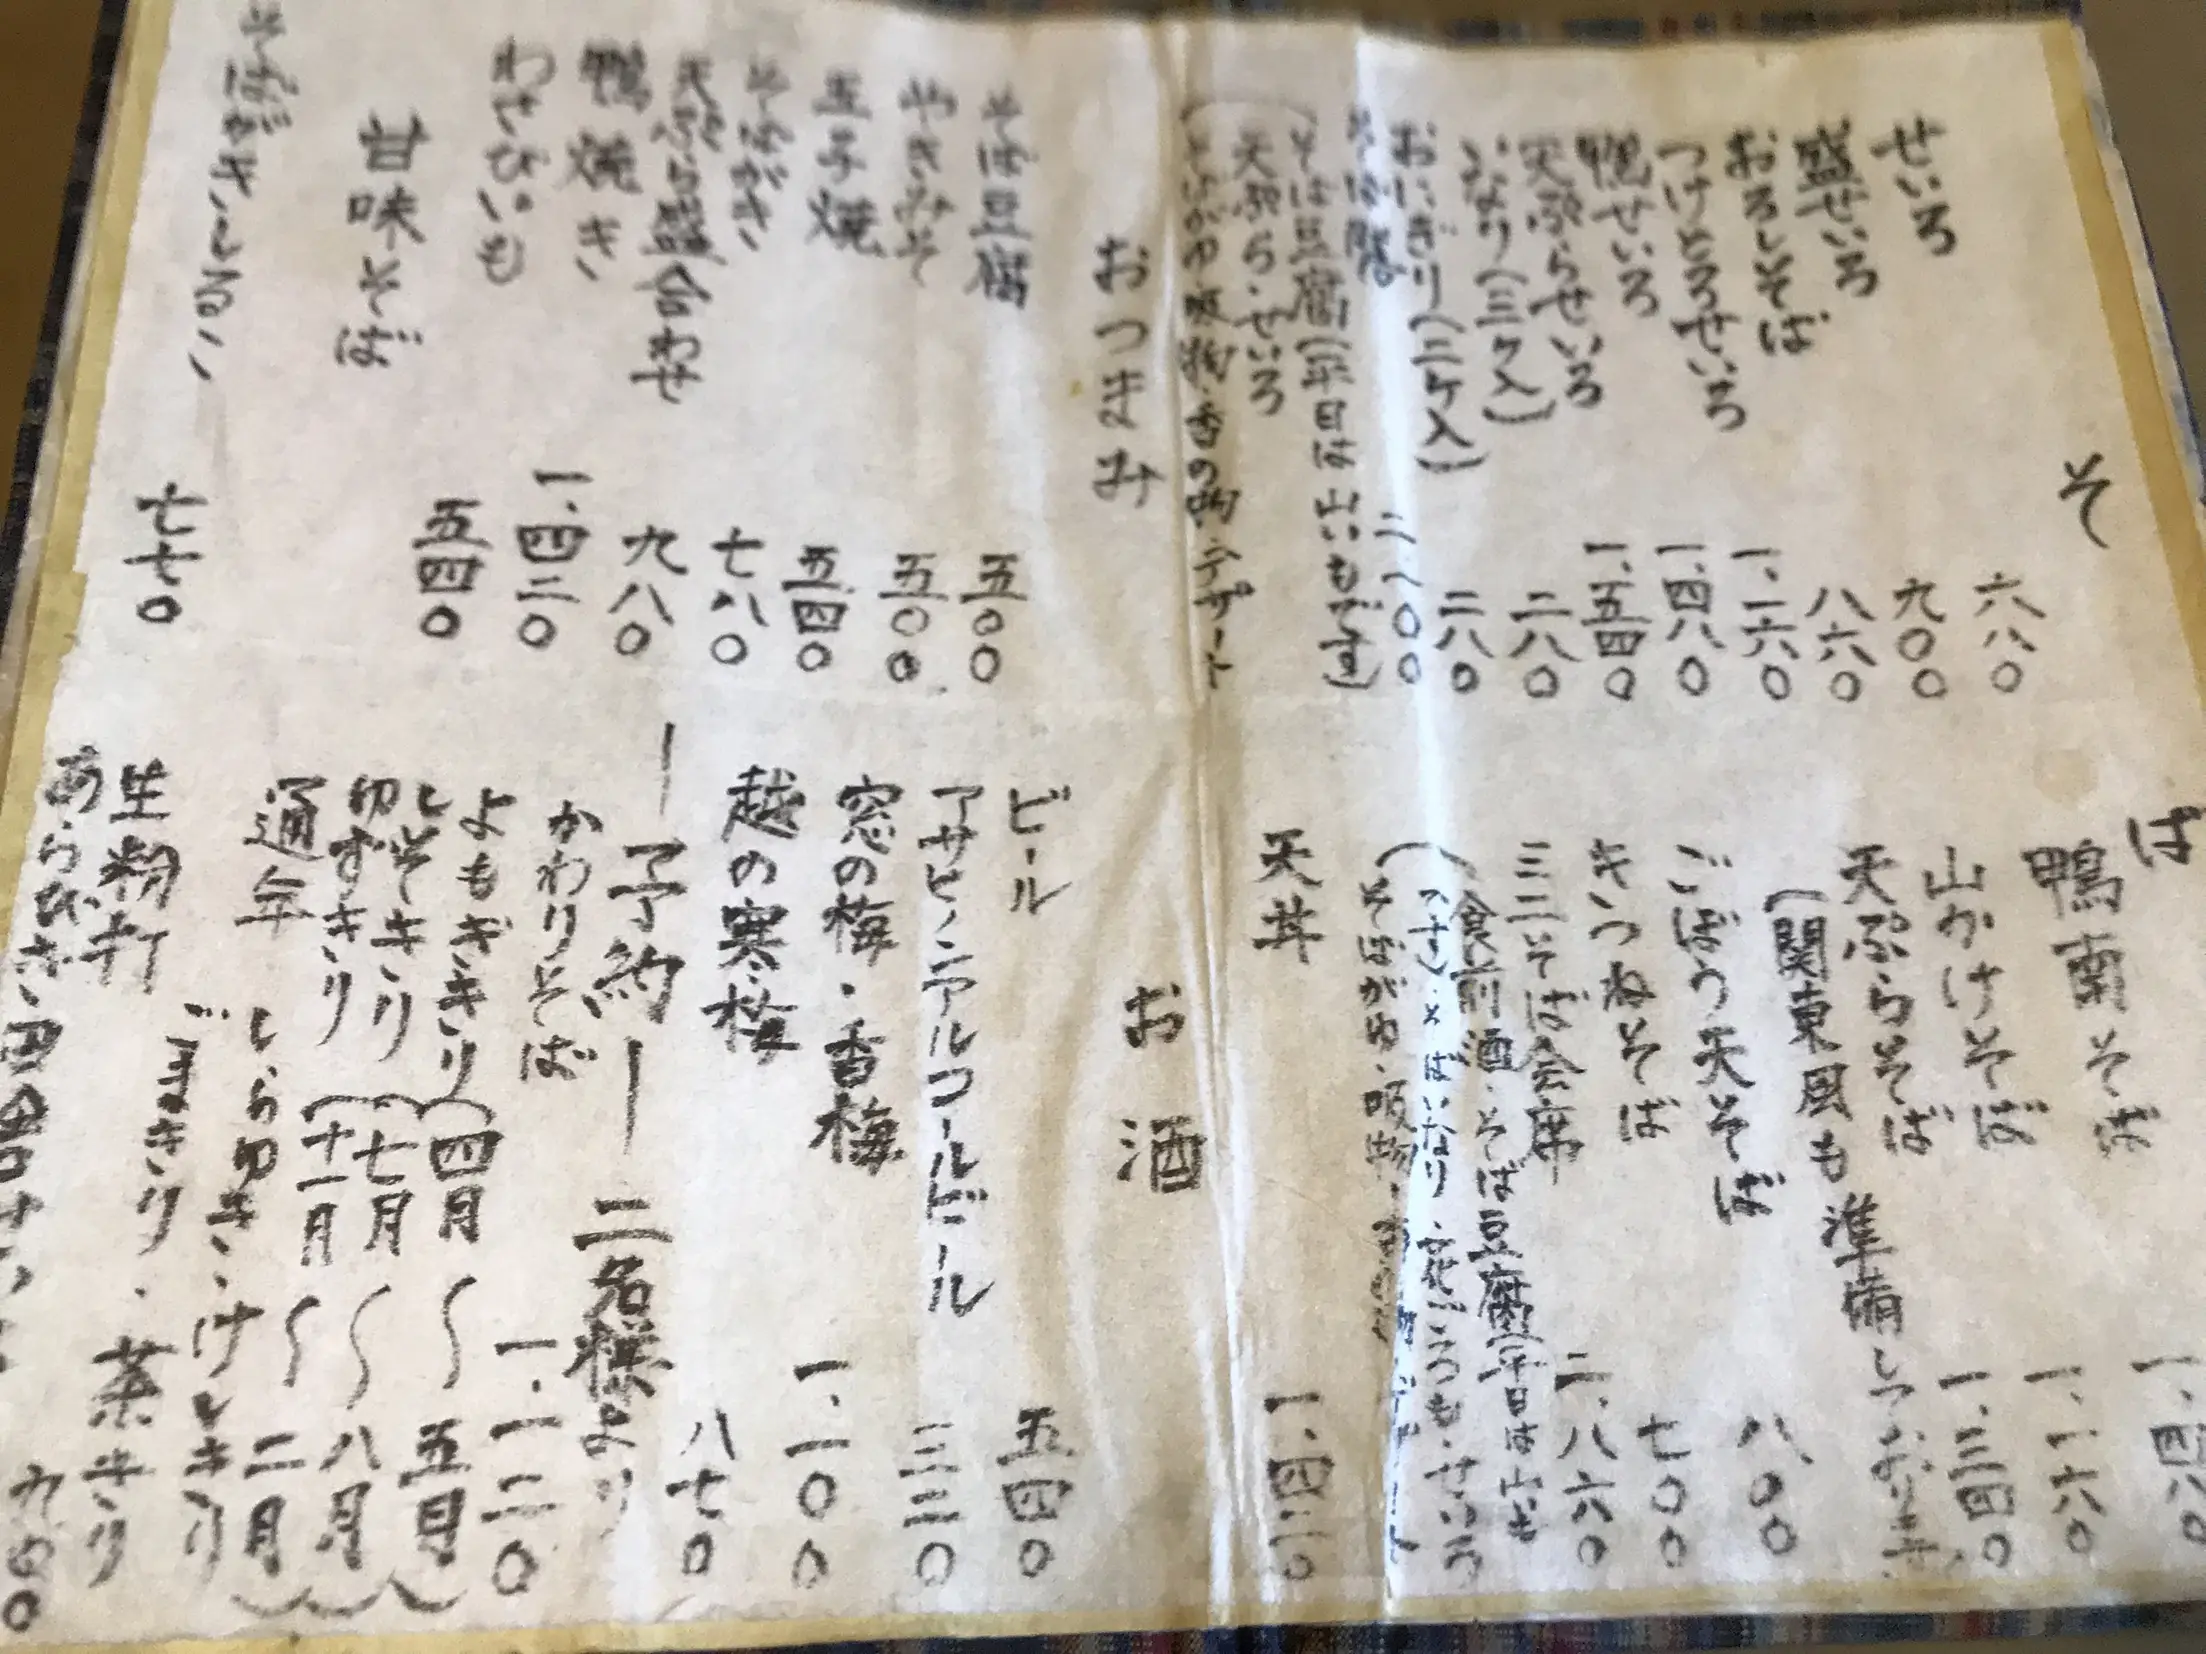 そば
せいろ 六八〇
盛せいろ 九〇〇
おろしそば 八六〇
つけとろせいろ 一、一六〇
鴨せいろ 一、四八〇
天ぷらせいろ 一、五四〇
いなり(三ケ入) 二八〇
おにぎり(二ケ入) 二八〇
そば膳
そば豆腐(平日は
天ぷら・せいろ
鴨南そば 一、四八〇
山かけそば 一、一六〇
天ぷらそば 一、三四〇
(関東風も準備しております
ごぼう天そば 八〇〇
きつねそば 七〇〇
三二そば会席 二、八六〇
(食前酒・そば豆腐(平日は
天丼 一、四二〇
おつまみ
そば豆腐 五〇〇
やきみそ 五〇〇
玉子焼 五四〇
そばがき 七八〇
天ぷら盛合わせ 九八〇
鴨焼き 一、四二〇
わさびいも 五四〇
甘味そば
そばがきしるこ 七七〇
お酒
ビール 五四〇
アサヒノンアルコールビール 三二〇
窓の梅・香梅 一、一〇〇
越の寒梅 八七〇
―予約― 二名様より
かわりそば 一、一二〇
よもぎきり(四月〜五月)
しそきり(七月〜八月)
ゆずきり(十一月〜二月)
通年 しらゆき・けしきり
ごまきり・茶きり
生粉打
あらびき・田舎 九〇〇